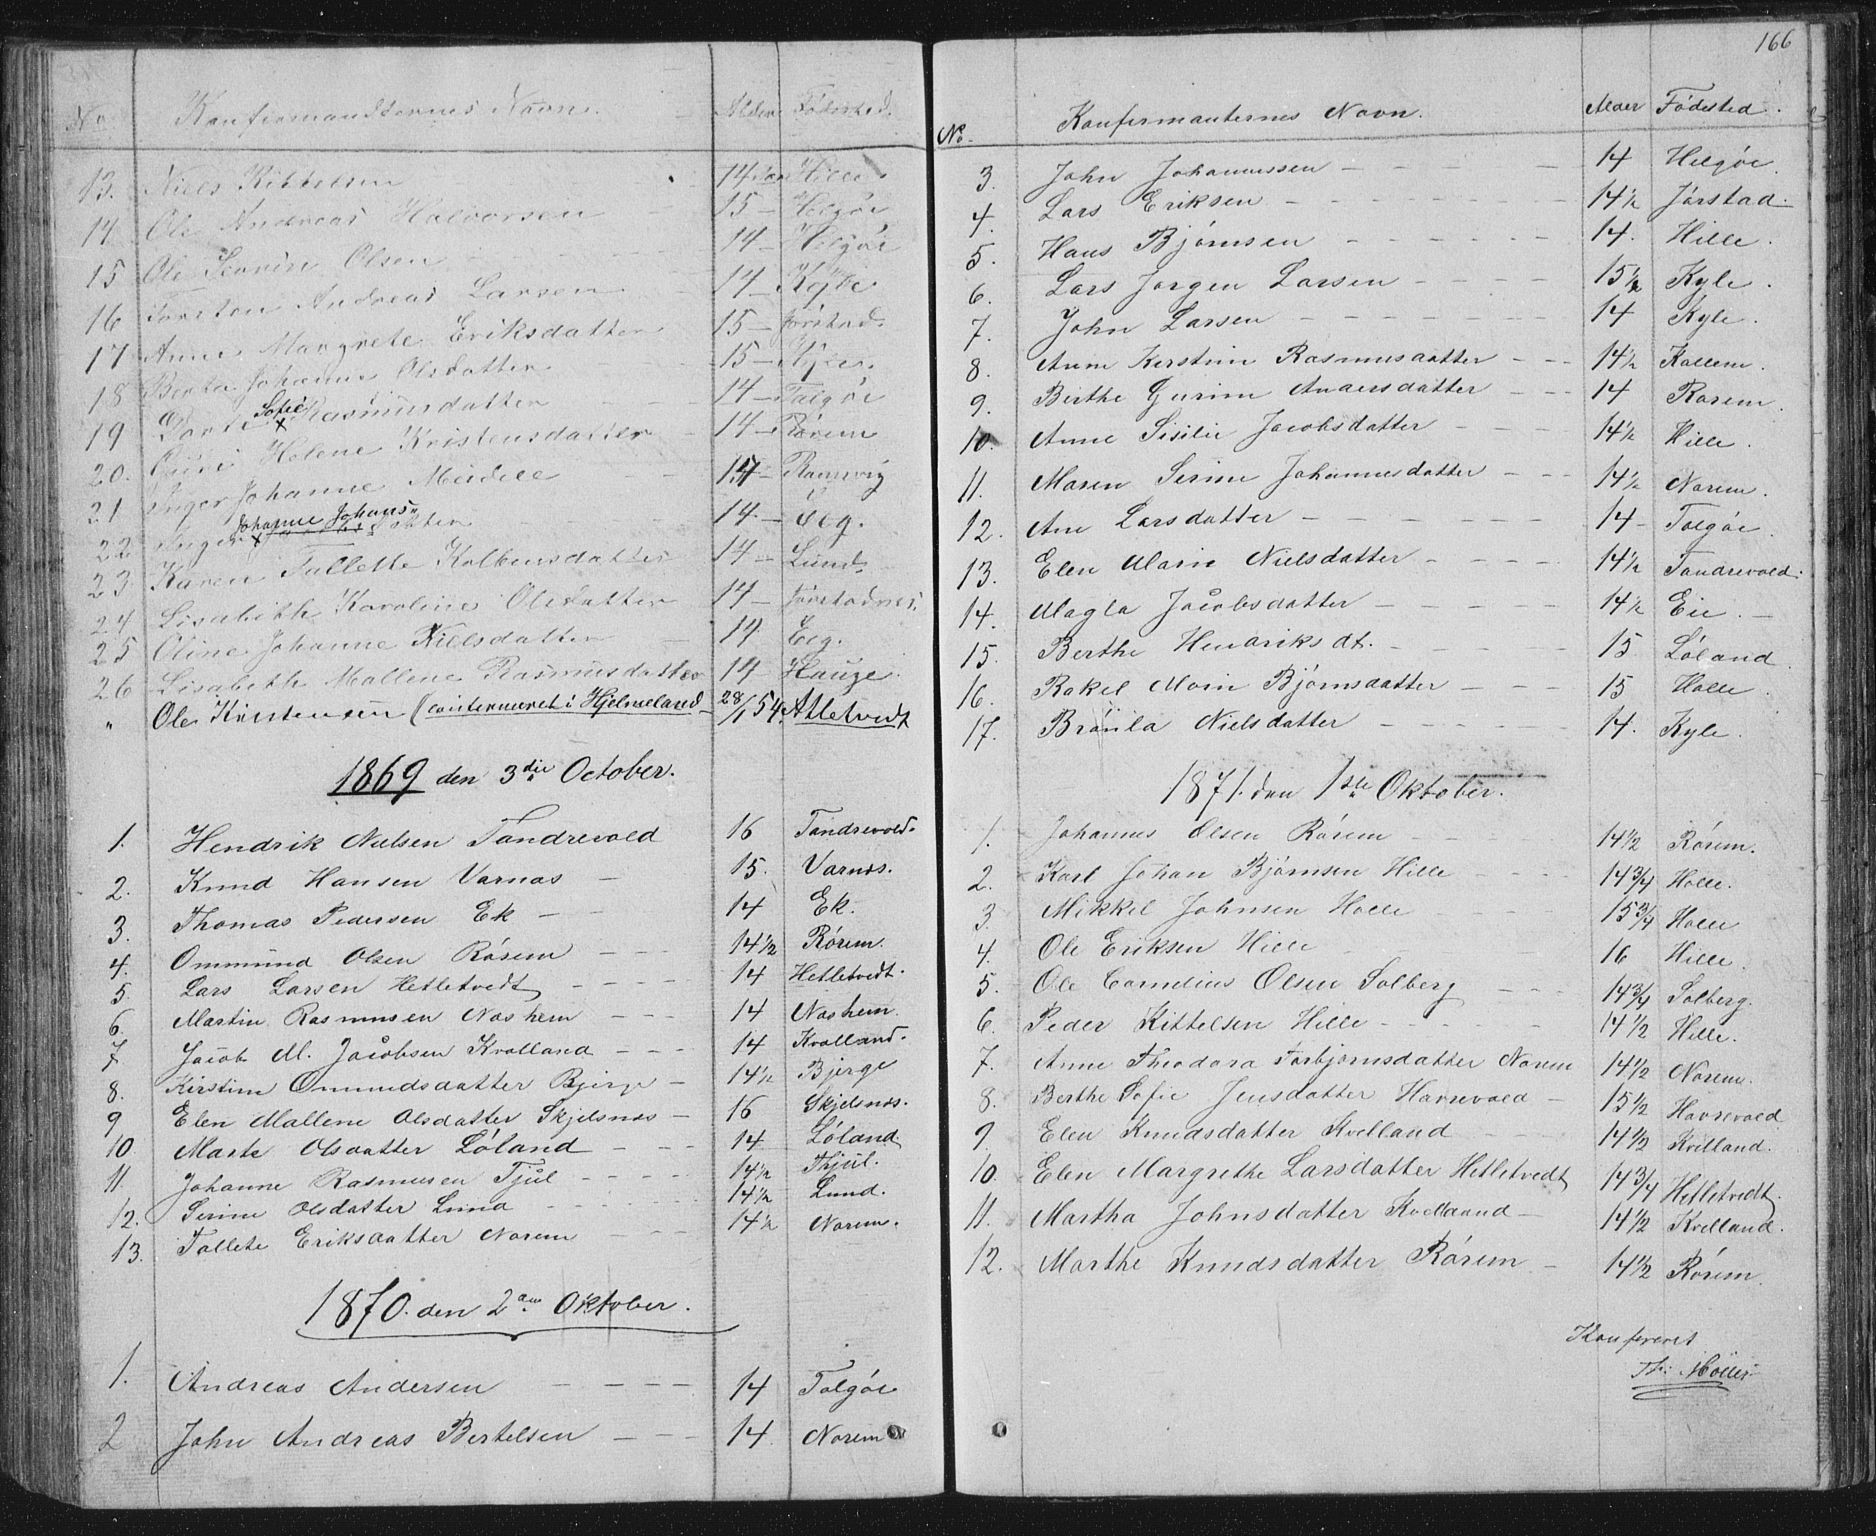 No Konfirmandternes Navne. Alder Fødested.
13. Niels Kittelsen 14 Aar Hille.
14 Ole Andreas Halvorsen 15 — Helgøe
15 Ole Severin Olsen 14 — Helgøe
16 Torsten Andreas Larsen 14 — Kyle
17 Anne Margrete Eriksdatter 15 — Jørstad.
18 Berta Johanne Olsdatter 15 — Kyle.
19 Dorte Sofie Rasmusdatter 14 — Talgøe
20. Guri Helene Kristensdatter 14 — Rørem
21 Inger Johanne Meidell 14 — Ramsvig
22 Inger Johanne Johans datter 14. — Eeg.
23 Karen Tallette Kolbensdatter 14 — Lund.
24 Lisabeth Karoline Olsdatter 14 — Jørstadnes.
25 Oline Johanne Nielsdatter 14. Eeg.
26 Lisabeth Mallene Rasmusdatter 14 — Hauge.
" Ole Kristensen (confirmeret i Hjelmeland 28/1 54. Atletvedt
1869 den 3die October.
1. Hendrik Nielsen Tandrevold 16 Tandrevold.
2. Knud Hansen Varnes — 15. Varnes.
3. Thomas Pedersen Ek — — 14 Ek.
4. Ommund Olsen Rørem — — — 14 1/2 Rørem.
5. Lars Larsen Hetletvedt — — — — 14 Hetletvedt.
6. Martin Rasmussen Nashem — — — 14 Nashem.
7. Jacob M. Jacobsen Kvalland — — — 14 Kvalland.
8. Kirstine Ommundsdatter Bjerge — 14 1/2 Bjerge
9 Elen Mallene Olsdatter Skjelsnæs — 16 Skjelsnæs.
10 Marte Olsdatter Løland — — 14 Løland
11 Johanne Rasmusen Tjul — — — — 14 1/2 Thjul.
12. Serine Olsdatter Lund — — — — 14 1/2 Lund.
13. Tallete Eriksdatter Norem — — — 14 1/2 Norem.
1870. den 2den Oktober.
1. Andreas Andersen — — — — 14 Talgøe
2 John Andreas Bertelsen — — — 14. Norem
166
No. Konfirmanternes Navn. Alder Fødested.
3. John Johannessen — — — — — 14 Helgøe.
4. Lars Eriksen — — — — — — — 14 1/2 Jørstad.
5. Hans Bjørnsen — — — — — — 14. Hille.
6. Lars Jørgen Larsen — — — — 15 1/2 Kyle.
7. John Larsen — — — — — — — 14 Kyle.
8. Anne Kerstine Rasmusdatter — — — 14 1/2 Kallem.
9. Birthe Gurine Andersdatter — — — 14 Rørem.
10. Anne Sisilie Jacobsdatter — — — — 14 1/2 Hille.
11. Maren Serine Johannesdatter — — — 14 1/2 Norem.
12. Ane Larsdatter — — — — — — 14 — Talgøe.
13. Elen Marie Nielsdatter — — — — 14 1/2 Tandrevold.
14. Magla Jacobsdatter — — — — — 14 1/2 Eie. —
15. Berthe Hendriksdt. — — — — — 15 Løland.
16. Rakel Marie Bjørnsdatter — — — 15 Halle.
17. Brønla Nielsdatter — — — — — 14. Kyle.
1871. den 1ste Oktober.
1. Johannes Olsen Rørem — — — 14 1/2 Rørem.
2. Karl Johan Bjørnsen Hille — — — — 14 3/4 Halle.
3. Mikkel Johnsen Halle — — — — 15 3/4 Halle
4. Ole Eriksen Hille — — 16 Hille.
5. Ole Cornelius Olsen Solberg — — — 14 3/4 Solberg.
6. Peder Kittelsen Hille — — — — — — 14 1/2 Hille.
7. Anne Theodora Torbjørnsdatter Norem 14 1/2 Norem.
8. Berthe Sofie Jensdatter Havrevold — 15 1/2 Havrevold
9. Elen Knudsdatter Kvelland — — 14 1/2 Kvelland.
10. Elen Margrethe Larsdatter Hetletvedt 14 3/4 Hetletvedt.
11. Martha Johnsdatter Kvelland — 14 1/2 Kvelland.
12. Marthe Knudsdatter Rørem — 14 1/2 Rørem.
Konfereret
Th: Møller